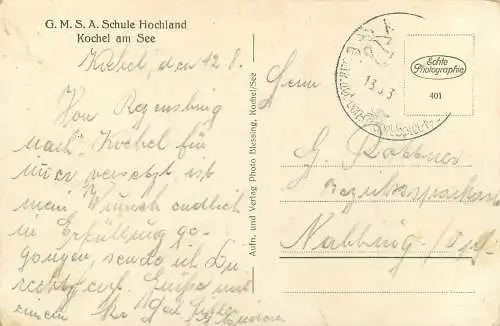 G. M. S. A. Schule Hochland
Kochel am See
Kochel, den 12. 8.
Von Regensburg
nach Kochel für
immer versetzt, ist
mein Wunsch endlich
in Erfüllung ge-
gangen, sende ich Dir
recht herzl. Grüße und
einem
Herrn
G.
Bezirkssparkasse
Nabburg / Opf.
Echte
Photographie
401
13. 8. 3
Aufn. und Verlag Photo Blessing, Kochel/See